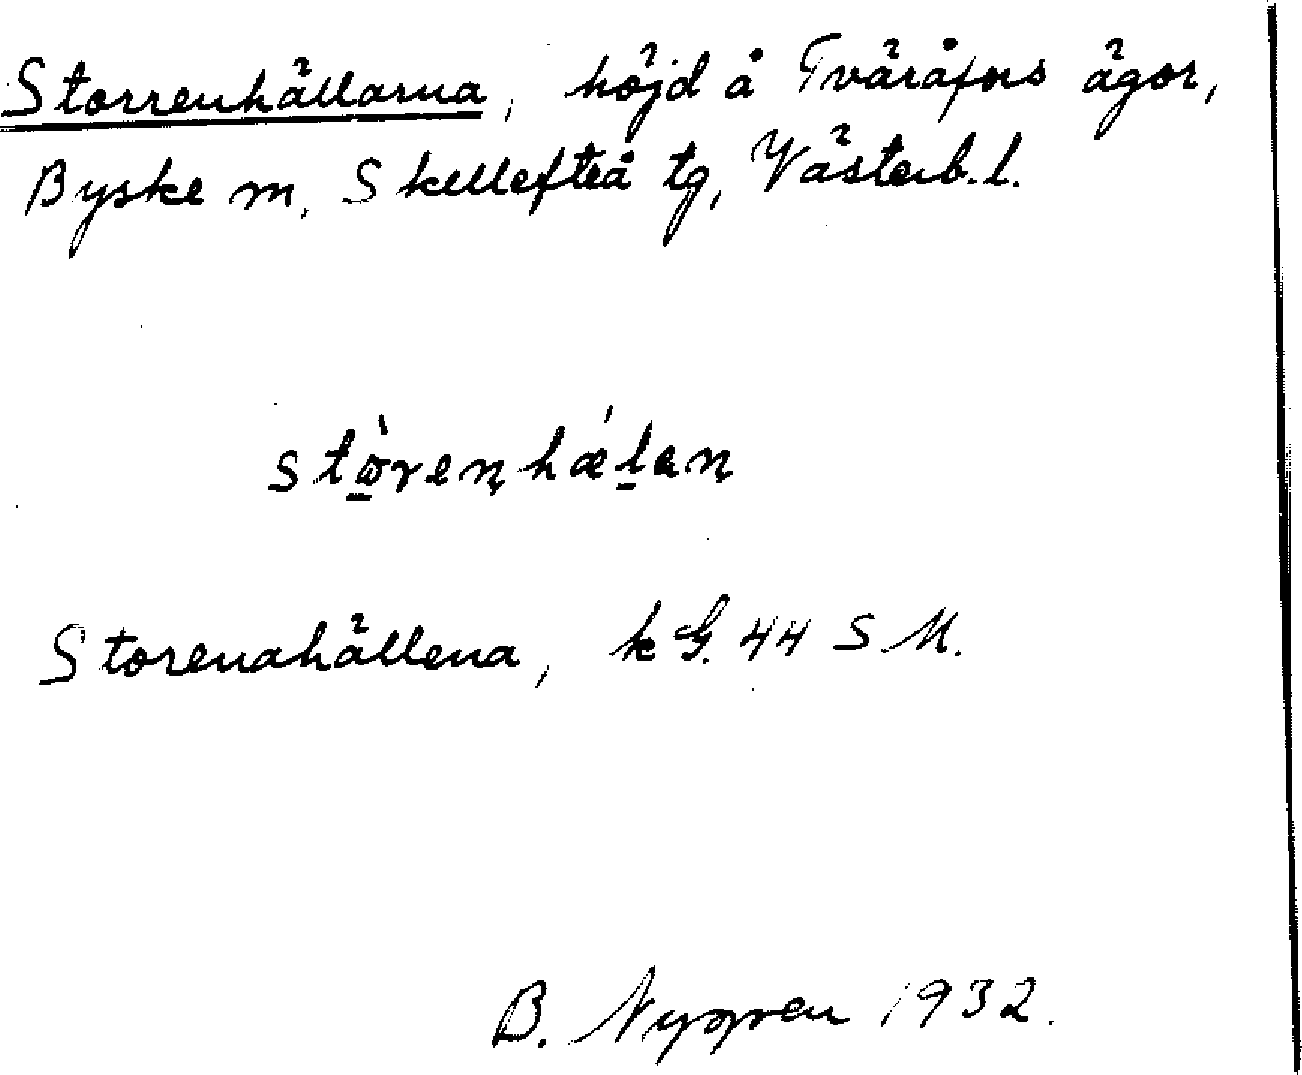 Storrenhällarna, höjd å Tväråfors ägor,
Byske sn, Skellefteå tg, Västerb. l.
stòrenhǽlan
Storenahällena, k G. 44 S M.
B. 1932.